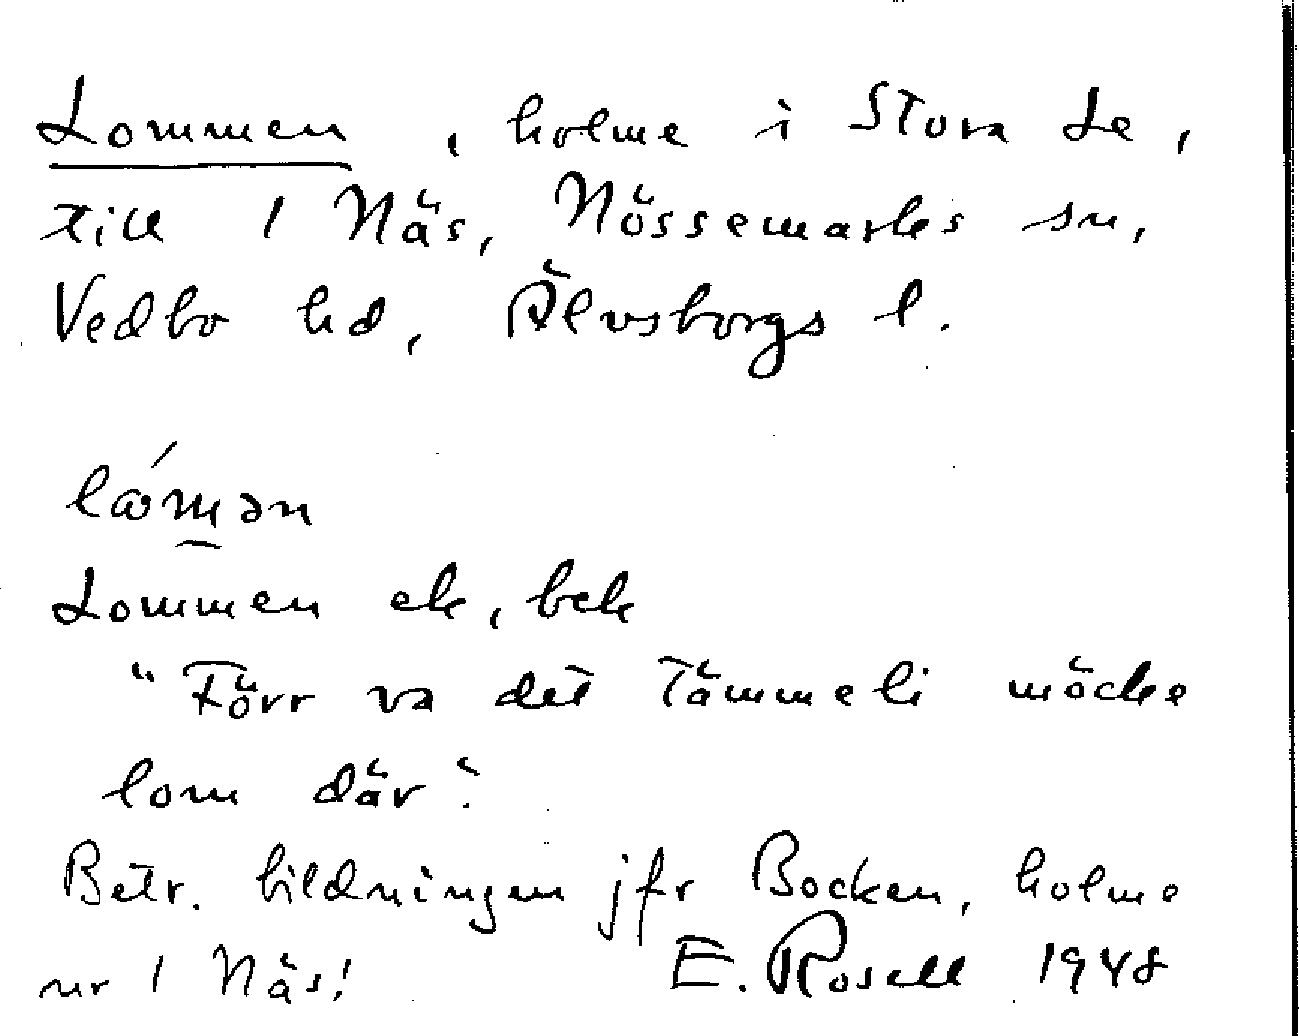 Lommen, holme i Stora Le,
till 1 Näs, Nössemarks sn,
Vedbo hd, Älvsborgs l.
lómən
Lommen ek, bek
"Förr va det tämmeli möcke
lom där".
Betr. bildningen jfr Bocken, holme
nr 1 Näs!
E. Rosell 1948